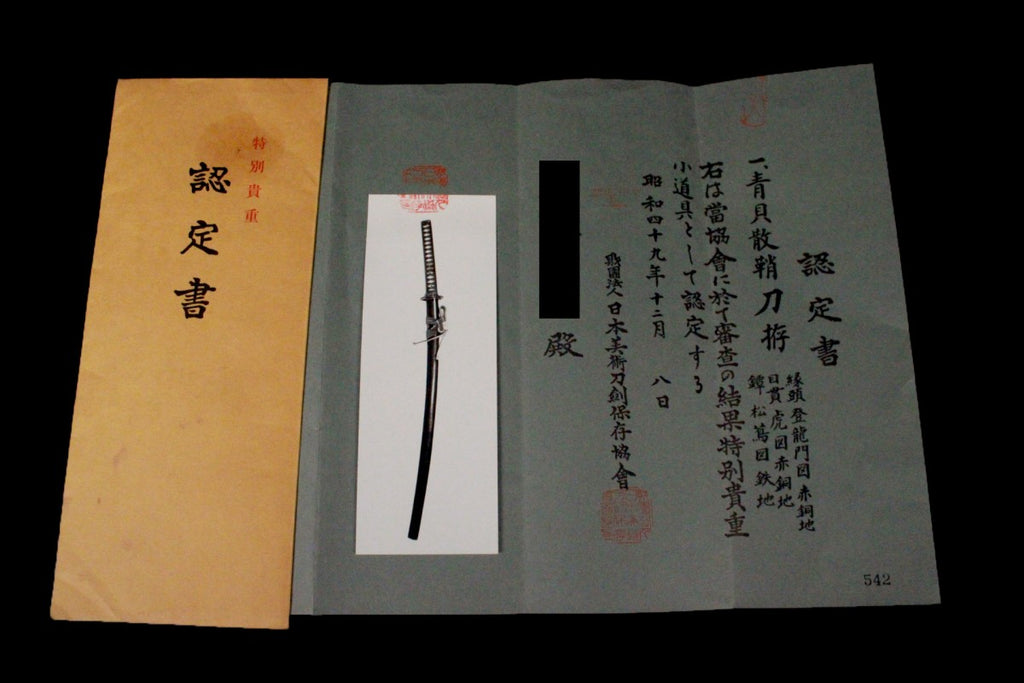 特別貴重
認定書
認定書
一、青貝散鞘刀拵
縁頭登龍門図赤銅地
目貫虎図赤銅地
鐔松蔦図鉄地
右は當協會に於て審査の結果特別貴重
小道具として認定する
昭和四十九年十二月 八日
財團法人日本美術刀剣保存協會
殿
542